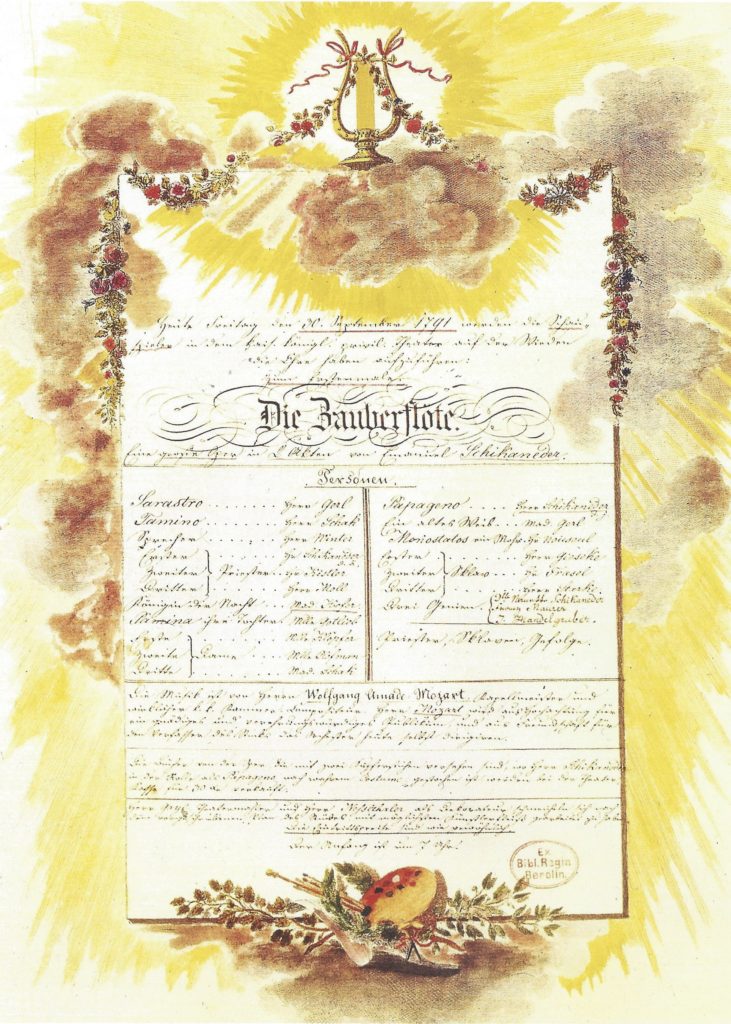 Heute Freitag den 30. September 1791 werden die Schau-
spieler in dem kais. königl. privil. Theater auf der Wieden
die Ehre haben aufzuführen:
Zum Erstenmale:
Die Zauberflöte.
Eine große Oper in 2 Akten von Emanuel Schikaneder.
Personen.
Sarastro . . . . . . . Herr Gerl
Tamino . . . . . . . Herr Schak
Sprecher . . . . . . . Herr Winter
Erster } Hr. Schikaneder d. ä.
Zweiter } Priester . . Hr. Kistler
Dritter } Herr Moll
Königin der Nacht . . . Mad. Hofer
Pamina ihre Tochter Mlle. Gottlieb
Erste } Mlle. Klöpfer
Zweite } Dame . . . Mlle. Hofmann
Dritte } Mad. Schak
Papageno . . . . Herr Schikaneder
Ein altes Weib . . . Mad. Gerl
Monostatos ein Mohr Hr. Nouseul
Erster } Herr Gieseke
Zweiter } Sklav . . . Hr. Frasel
Dritter } Herr Starke
Drei Genien { Schikaneder
Maurer
Handelgruber.
Priester, Sklaven, Gefolge.
Die Musik ist von Herrn Wolfgang Amade Mozart, Kapellmeister und
wirklicher k. k. Kammer-Compositeur. Herr Mozart wird aus Hochachtung für
ein gnädiges und verehrungswürdiges Publikum, und aus Freundschaft für
den Verfasser des Stücks das Orchester heute selbst dirigiren.
Die Bücher von der Oper die mit zwei Kupferstichen versehen sind, wo Herr Schikaneder
in der Rolle als Papageno nach wahrem Costume gestochen ist werden bei der Theater
Cassa für 30 kr. verkauft.
Herr Theatermaler und Herr Neßlthaler als Dekorateur schmeicheln sich nach
dem vorgeschriebenen Plan des Stückes mit möglichstem Künstlerfleiß gearbeitet zu haben.
Die Eintrittspreise sind wie gewöhnlich
Der Anfang ist um 7 Uhr.
Ex
Bibl. Regia
Berolin.